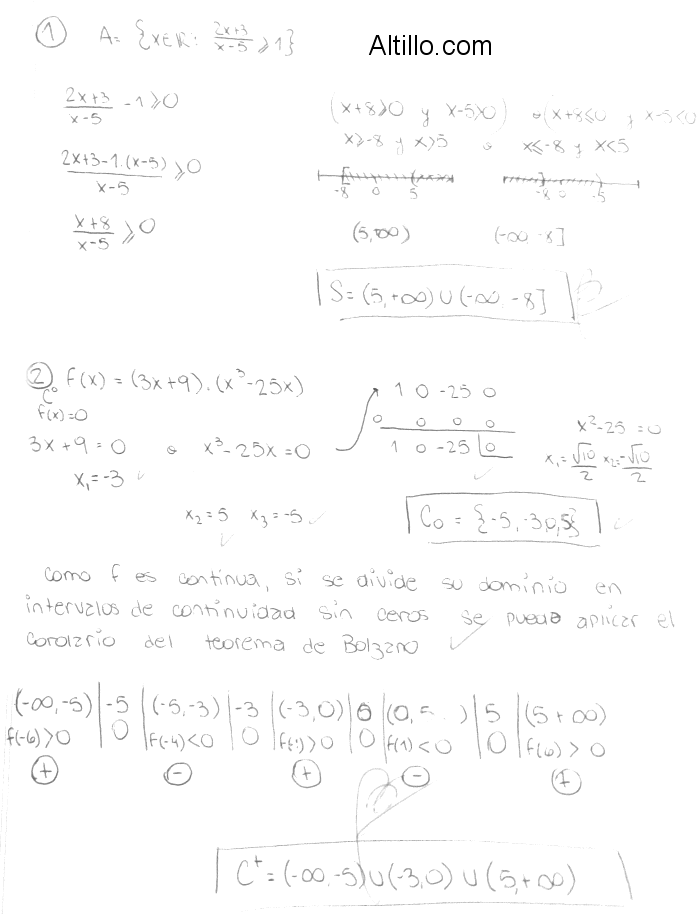 ① A = {x∈ℝ: (2x+3)/(x-5) ⩾ 1}
Altillo.com
(2x+3)/(x-5) - 1 ⩾ 0
(2x+3-1.(x-5))/(x-5) ⩾ 0
(x+8)/(x-5) ⩾ 0
(x+8⩾0 y x-5>0) o (x+8⩽0 y x-5<0
x⩾-8 y x>5 o x⩽-8 y x<5
-8 0 5 -8 0 -5
(5,+∞) (-∞, -8]
S = (5,+∞) ∪ (-∞, -8]
② f(x) = (3x+9).(x³-25x)
C⁰
f(x)=0
3x+9=0 o x³-25x=0
x₁=-3
1 0 -25 0
0 0 0 0
1 0 -25 0
x²-25=0
x₁=√10/2 x₂=-√10/2
x₂=5 x₃=-5
C₀ = {-5,-3,0,5}
como f es continua, si se divide su dominio en
intervalos de continuidad sin ceros se puede aplicar el
corolario del teorema de Bolzano
(-∞,-5) | -5 | (-5,-3) | -3 | (-3,0) | 0 | (0,5) | 5 | (5 +∞)
f(-6)>0 | 0 | f(-4)<0 | 0 | f(-1)>0 | 0 | f(1)<0 | 0 | f(6) > 0
+ - + - +
C⁺ = (-∞,-5)∪(-3,0) ∪ (5,+∞)